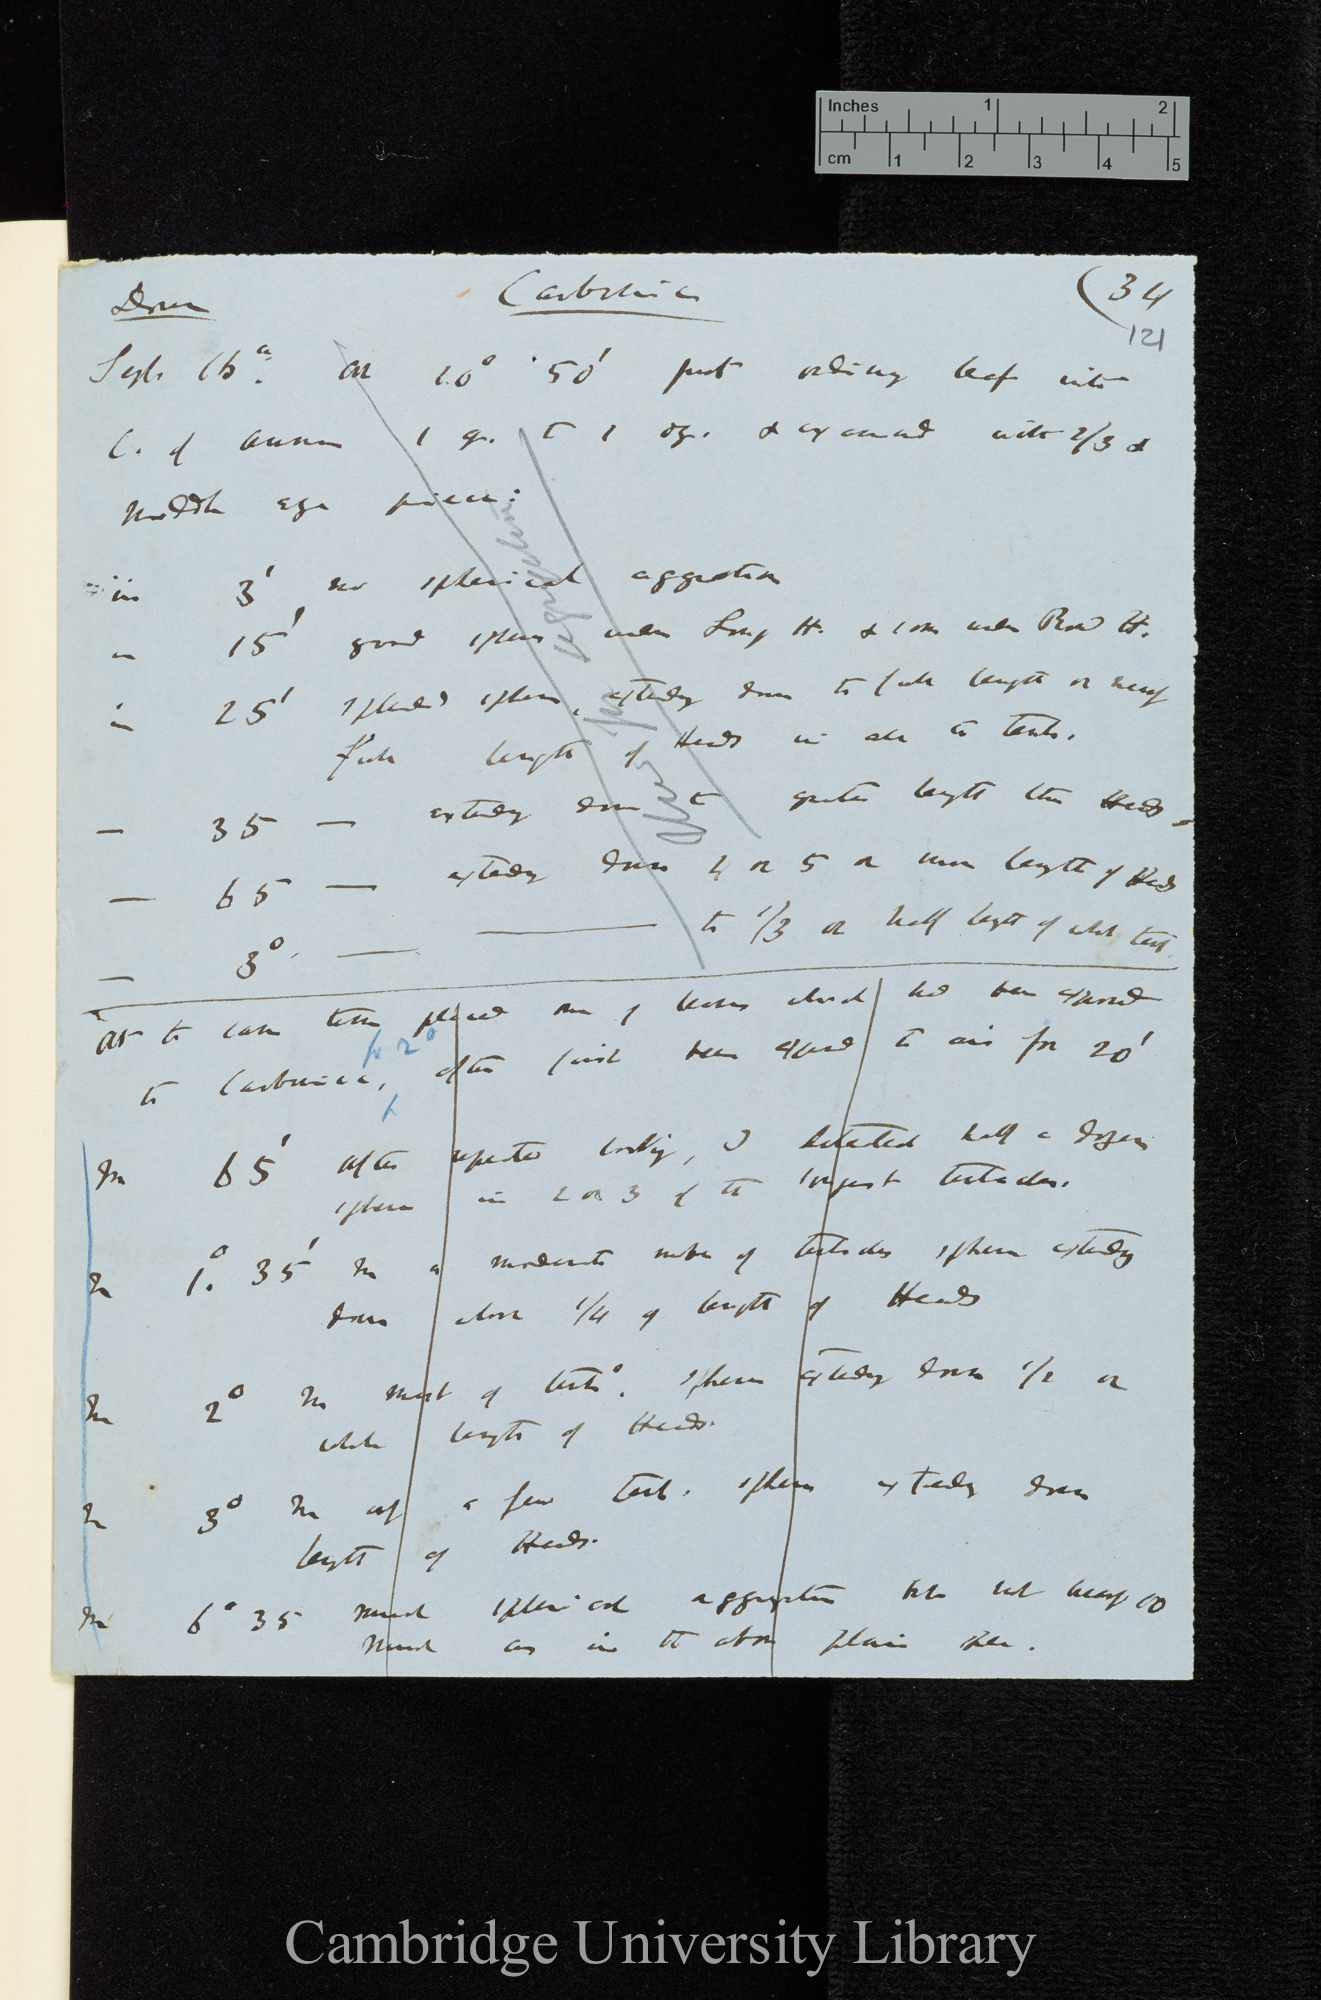 Inches 1 2
cm 1 2 3 4 5
(34
121
Carbonic
Sept 16th. At 10° 50' put ordinary leaf into
C. of Ammon 1 gr. to 1 oz. & examined with 2/3 &
middle eye piece:
in 3' no spherical aggregation
in 15' good spheres under Long H. & some under Round H.
in 25' splendid spheres, extending down to full length or nearly
full length of Heads in all the tents.
— 35 — extending down to greater length than Heads
— 65 — extending down 4 or 5 or more length of Heads
— 3° — — to 1/3 or half length of whole tent.
At the same time placed one of leaves which had been exposed
for 2°
to Carbonic, after first been exposed to air for 20'
In 65' after repeated looking, I detected half a dozen
spheres in 2 or 3 of the longest tentacles.
In 1° 35' In a moderate number of tentacles spheres extending
down about 1/4 of length of Heads
In 2° In most of tents. spheres extending down 1/2 or
whole length of Heads.
In 3° In only a few tent. spheres extending down
length of Heads.
In 6° 35 much spherical aggregation but not nearly so
much as in the above plain
Cambridge University Library